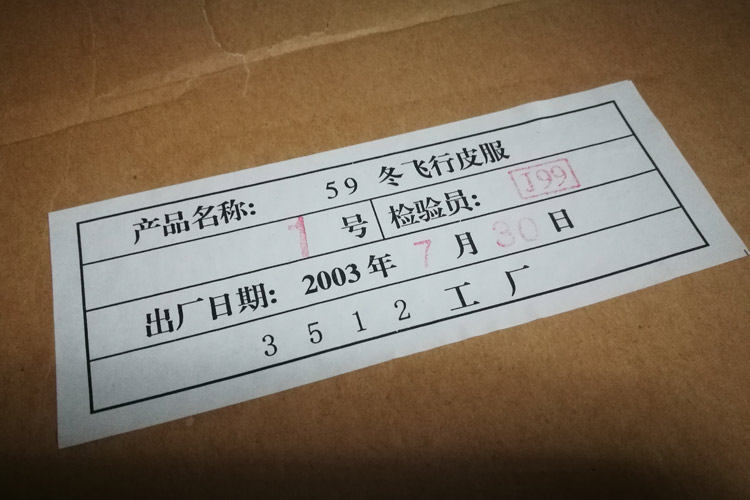 产品名称: 59 冬飞行皮服
1 号 检验员: J99
出厂日期: 2003年 7 月 30 日
3512工厂